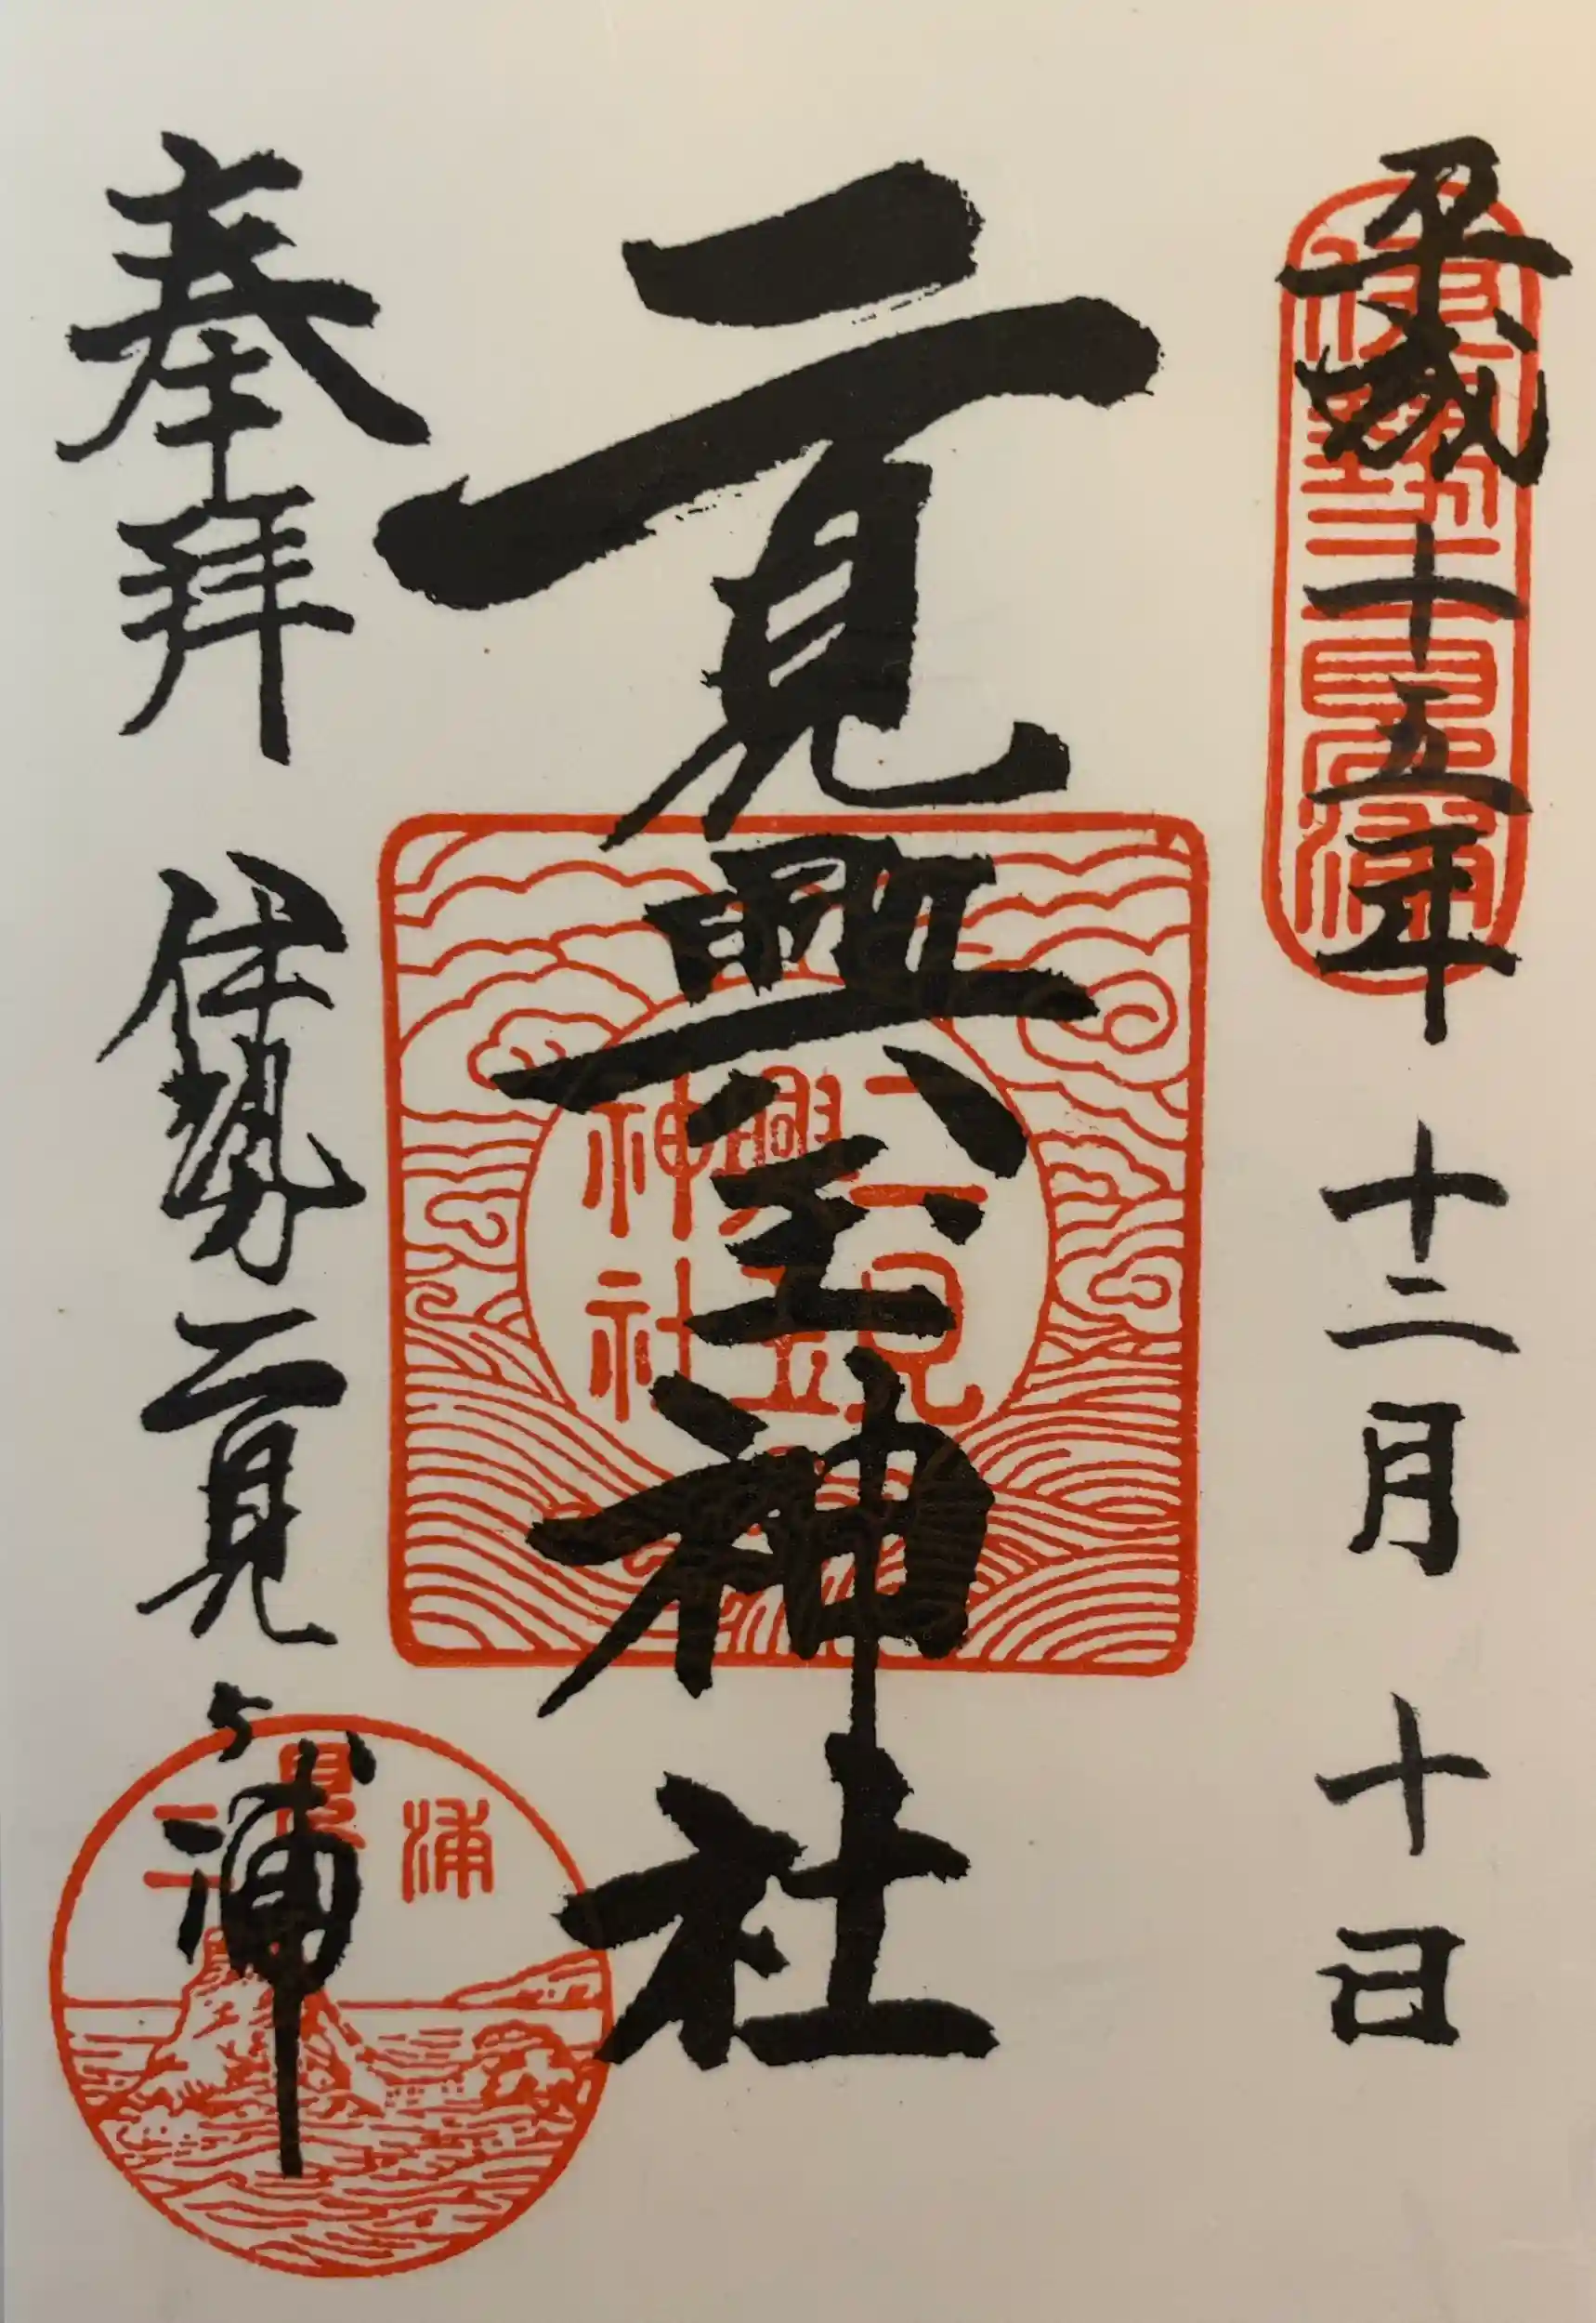 平成十五年 十二月 十日
伊勢二見浦
二見興玉神社
二見興玉神社
奉拝 伊勢二見ヶ浦
二見浦